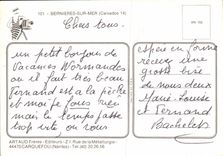 101 - BERNIERES-SUR-MER (Calvados 14)
Chers tous.
un petit bonjour de
vacances Normandes
ou il fait très beau
Fernand est a la pêche
et moi je fais rien
mais le temps passe
trop vite ou vous
espère en forme
recevez une
grosse bise
de nous deux
Marie-Louise
et Fernand
Bachelots
ARTAUD FRERES - Editeurs - Z.I. Rue de la Métallurgie -
44470 CARQUEFOU (Nantes)